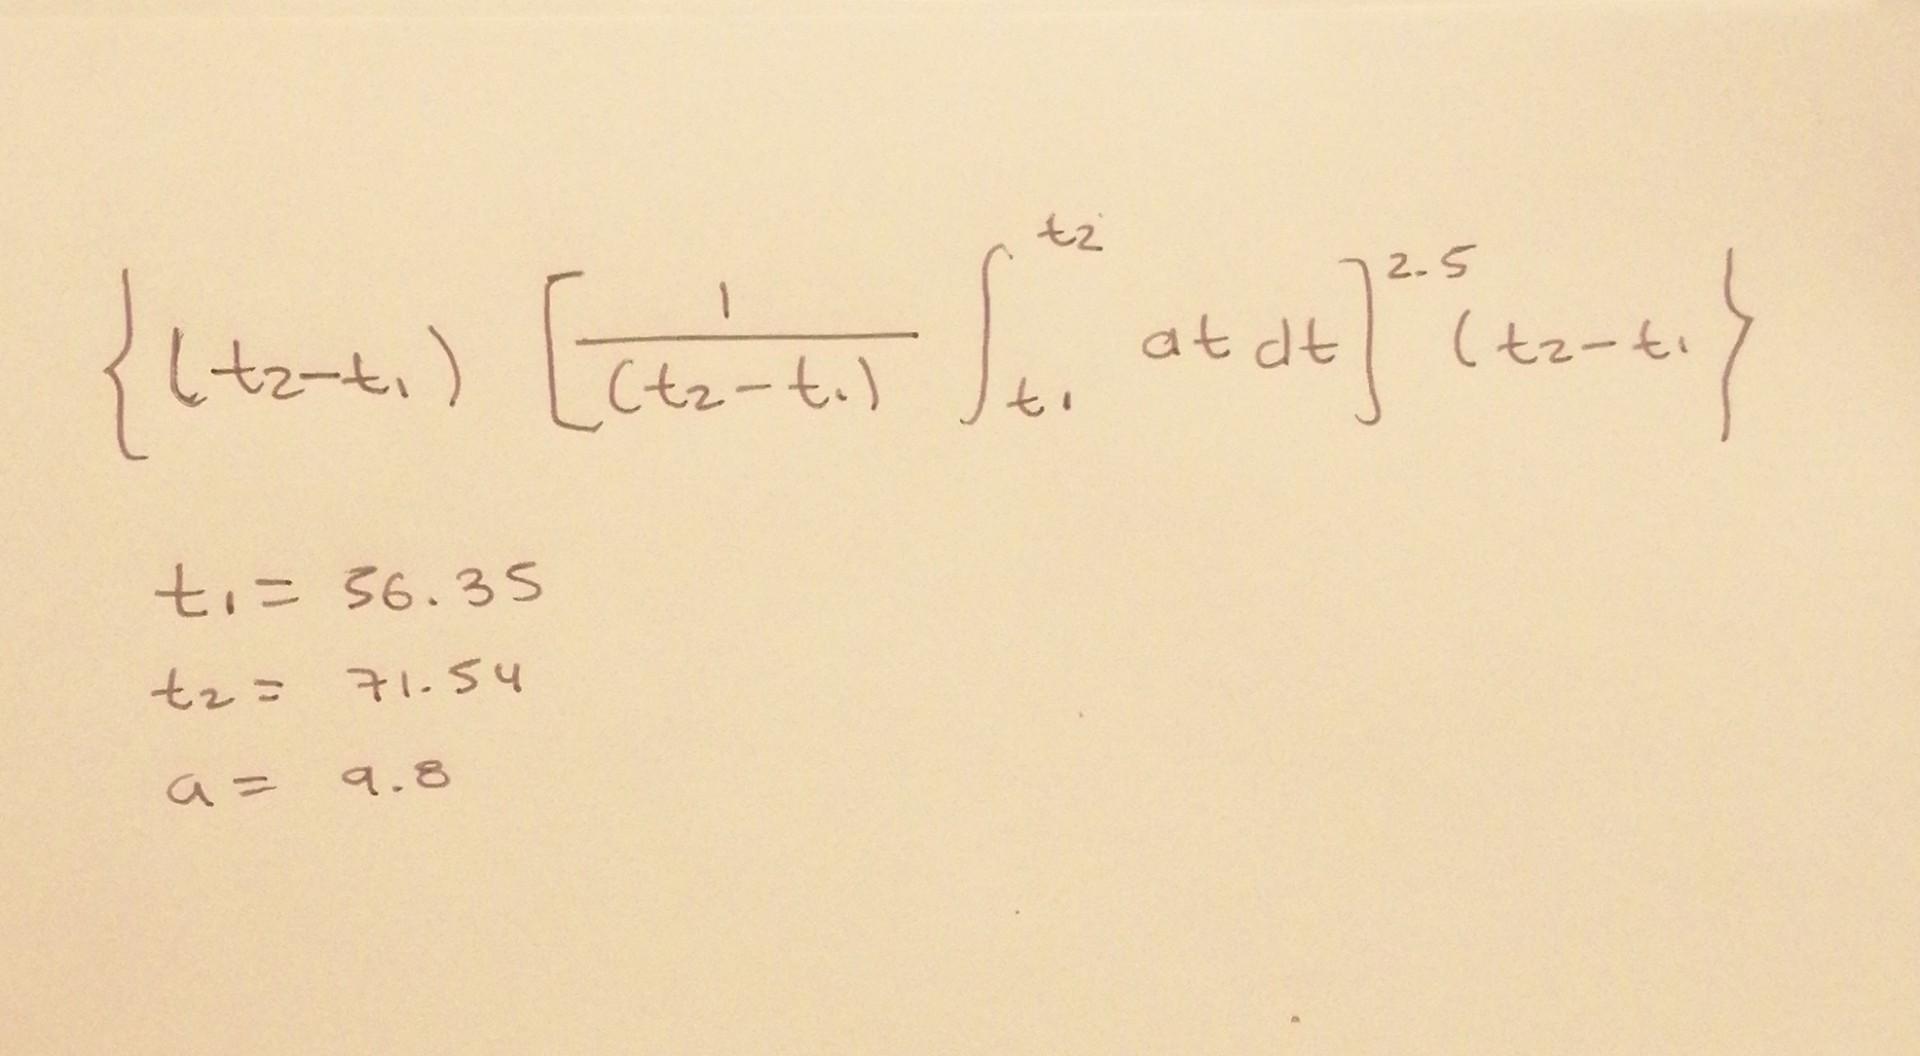 {(t₂-t₁) [1/(t₂-t₁) ∫_{t₁}^{t₂} at dt]^{2.5} (t₂-t₁}
t₁= 56.35
t₂= 71.54
a= 9.8